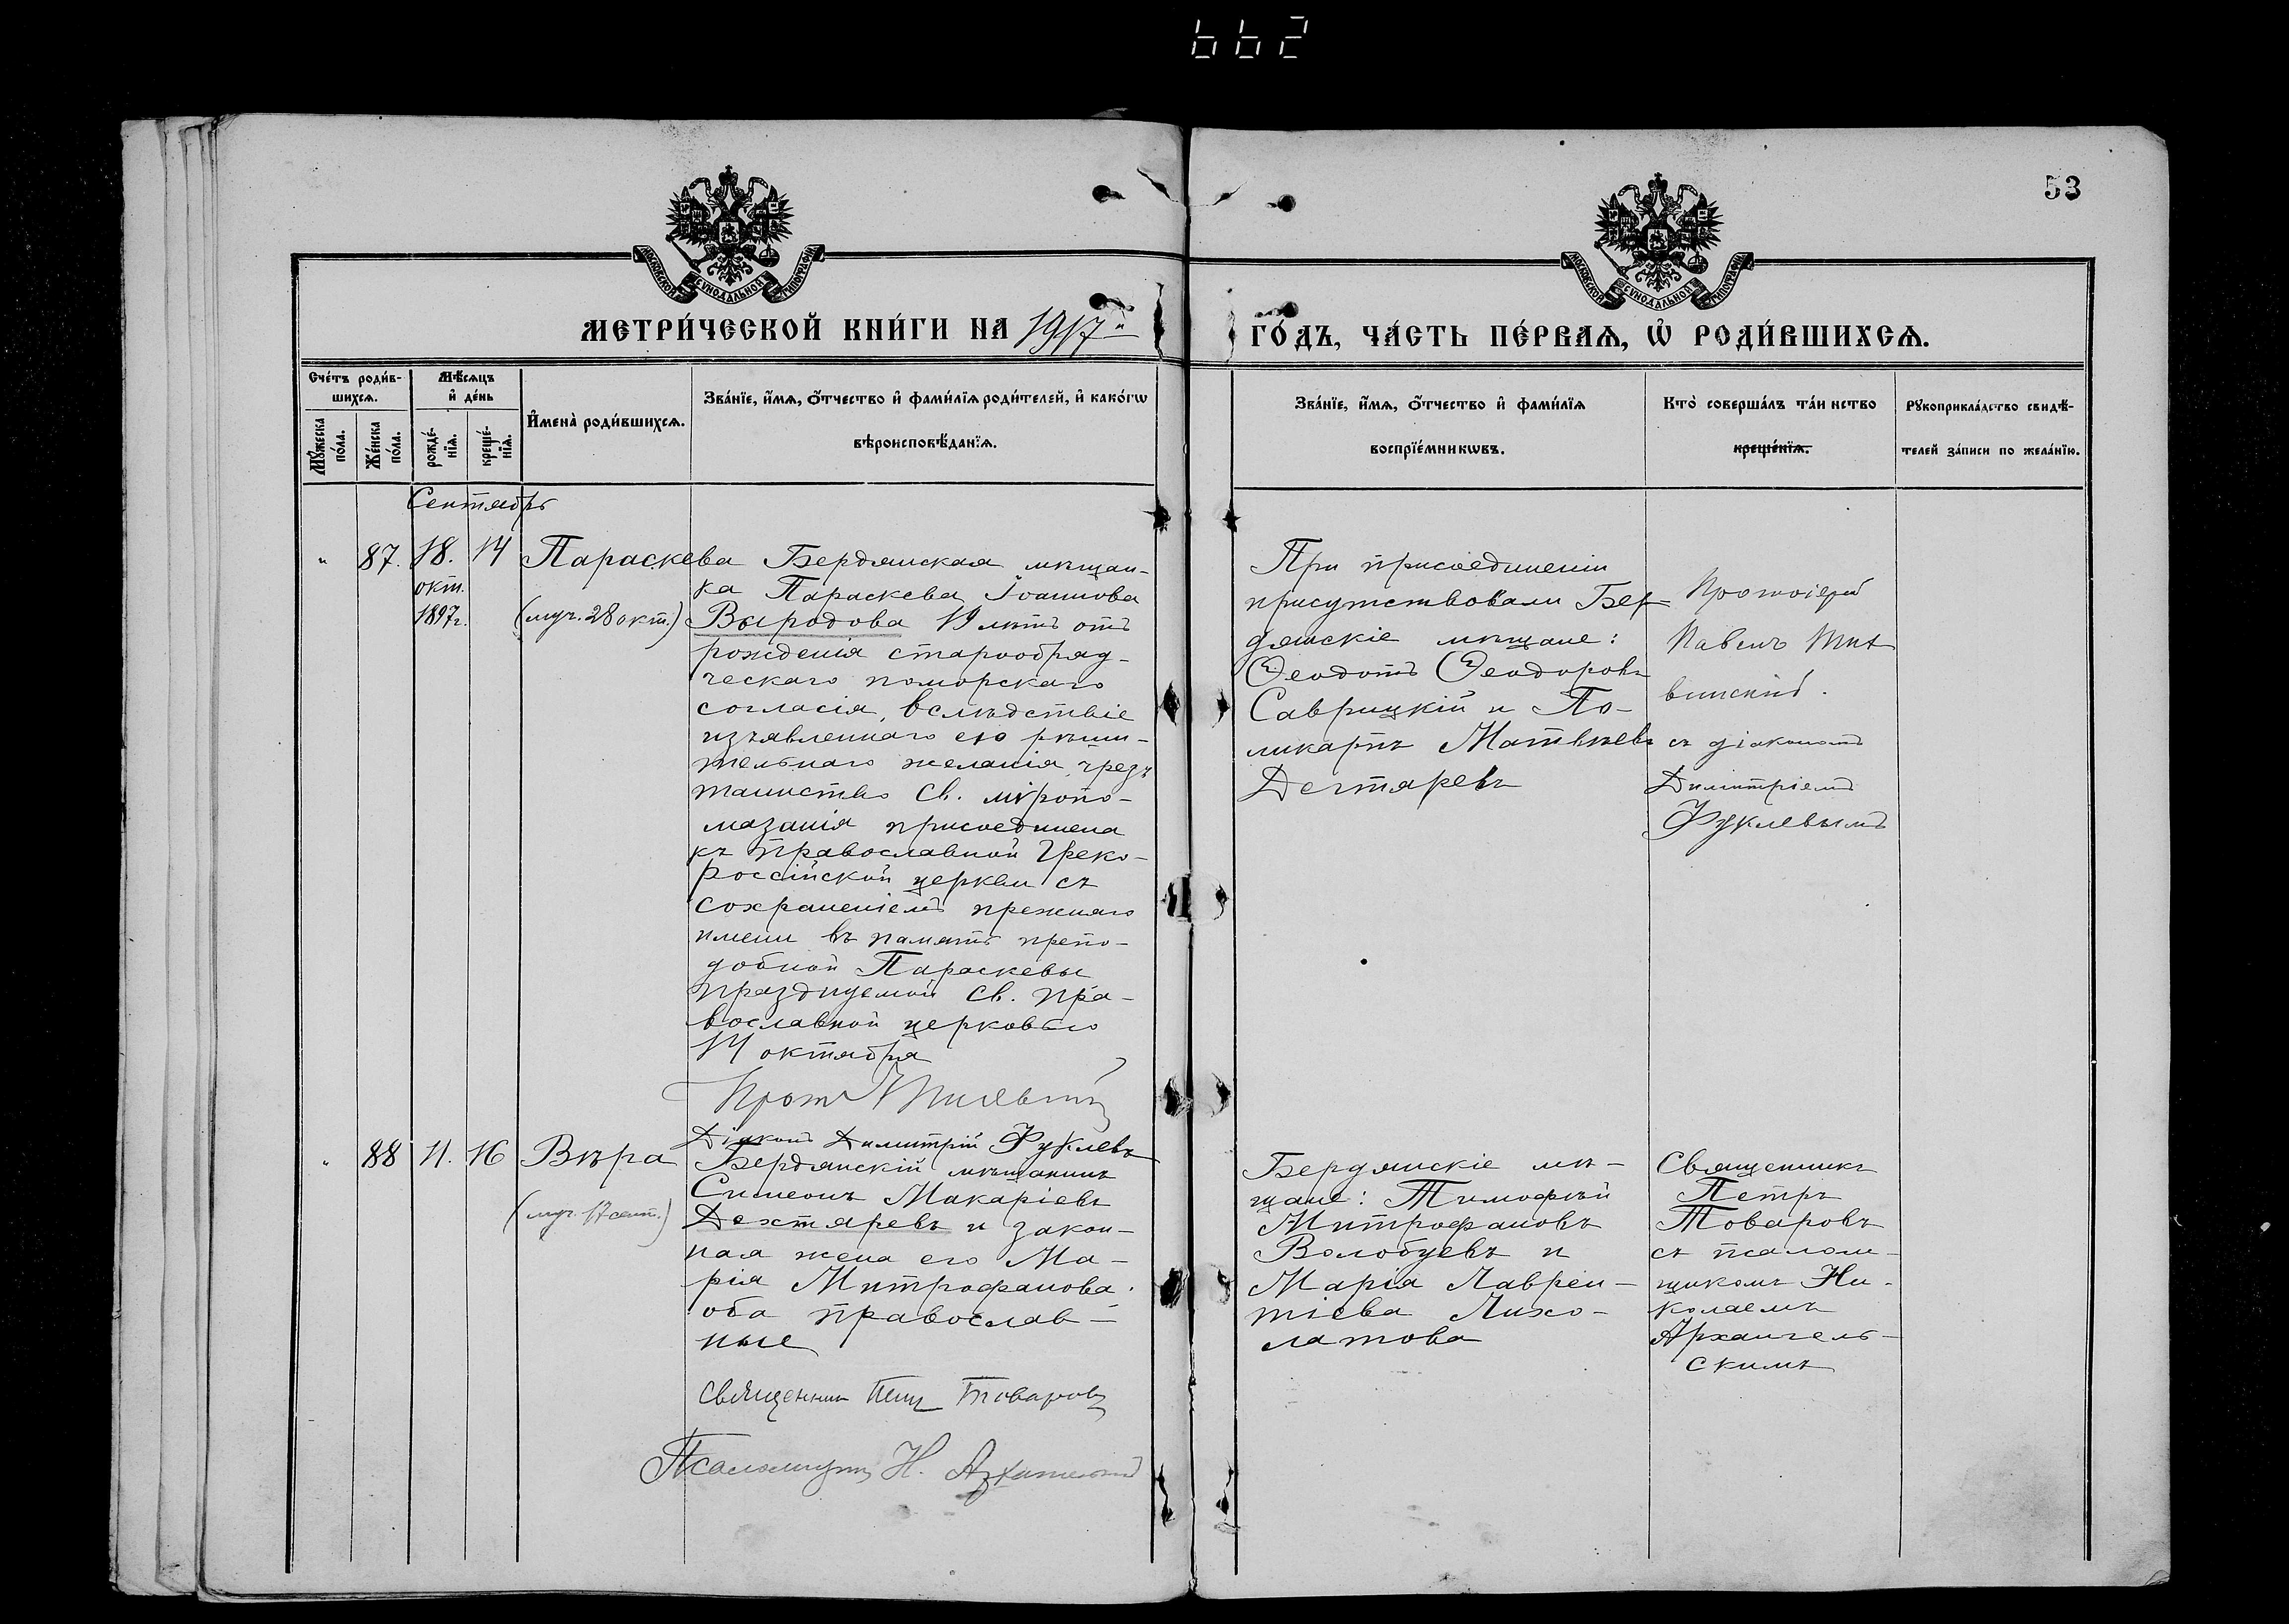 662
53
МОСКОВСКОЙ СѴНОДАЛЬНОЙ ТИПОГРАФІИ
МОСКОВСКОЙ СѴНОДАЛЬНОЙ ТИПОГРАФІИ
МЕТРИ́ЧЕСКОЙ КНИ́ГИ НА 1917
ГО́ДЪ, ЧА́СТЬ ПЕ́РВАѦ, Ѡ҆ РОДИ́ВШИХСѦ.
Сче́тъ роди́в-
шихсѧ.
Мꙋ́жеска по́ла.
Же́нска по́ла.
Мѣ́сѧцъ
и҆ де́нь
рожде́-
нїѧ.
креще́-
нїѧ.
И҆мена̀ роди́вшихсѧ.
Зва́нїе, и҆́мѧ, ѻ҆́тчество и҆ фами́лїѧ роди́телей, и҆ како́гѡ
вѣроисповѣ́данїѧ.
Зва́нїе, и҆́мѧ, ѻ҆́тчество и҆ фами́лїѧ
воспрїе́мникѡвъ.
Кто̀ соверша́лъ та́инство
креще́нїѧ.
Рꙋкоприкла́дство свидѣ́-
телей за́писи по жела́нїю.
Сентябрь
" 87. 18. 14 Параскева
окт.
1897 г.
(муч. 28 окт.)
Бердянская мѣщан-
ка Параскева Іоаннова
Выродова 19 лѣтъ отъ
рожденія старообряд-
ческаго поморскаго
согласія, вслѣдствіе
изъявленнаго ею рѣши-
тельнаго желанія, чрезъ
таинство св. мѵропо-
мазанія присоединена
къ православной Греко-
россійской церкви съ
сохраненіемъ прежняго
имени въ память препо-
добной Параскевы
празднуемой св. пра-
вославной церковью
14 октября
Діаконъ Димитрій Фуклевъ
При присоединеніи
присутствовали Бер-
дянскіе мѣщане:
Ѳеодотъ Ѳеодоровъ
Саврицкій и По-
ликарпъ Матвѣевъ
Дегтяревъ
Протоіерей
Павелъ
съ діакономъ
Димитріемъ
Фуклевымъ
" 88 11. 16 Вѣра
(муч. 17 сент.)
Бердянскій мѣщанинъ
Симеонъ Макаріевъ
Дехтяревъ и закон-
ная жена его Ма-
рія Митрофанова.
оба православ-
ные
Священникъ Петръ Товаровъ
Псаломщикъ Н. Архангельскій
Бердянскіе мѣ-
щане: Тимофѣй
Митрофановъ
Волобуевъ и
Марія Лаврен-
тіева Лихо-
латова
Священникъ
Петръ
Товаровъ
съ псалом-
щикомъ Ни-
колаемъ
Архангель-
скимъ